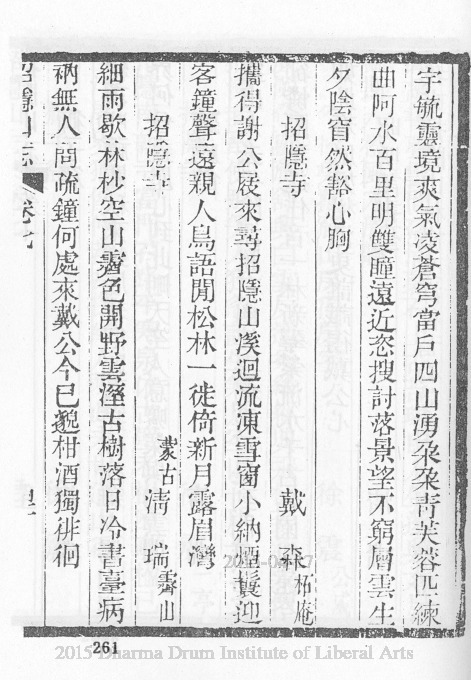 宇毓靈境爽氣凌蒼穹當戶四山湧朶朶青芙蓉匹練
曲阿水百里明雙瞳遠近恣搜討落景望不窮層雲生
夕陰窅然豁心胸
招隱寺 戴森柘庵
攜得謝公屐來尋招隱山溪迴流凍雪窗小納煙鬟迎
客鐘聲遠親人鳥語閒松林一徙倚新月露眉灣
招隱寺 蒙古清瑞霽山
細雨歇林杪空山霽色開野雲溼古樹落日冷書臺病
衲無人問疏鐘何處來戴公今已邈柑酒獨徘徊
招隱山志 卷七
261
2015 Dharma Drum Institute of Liberal Arts